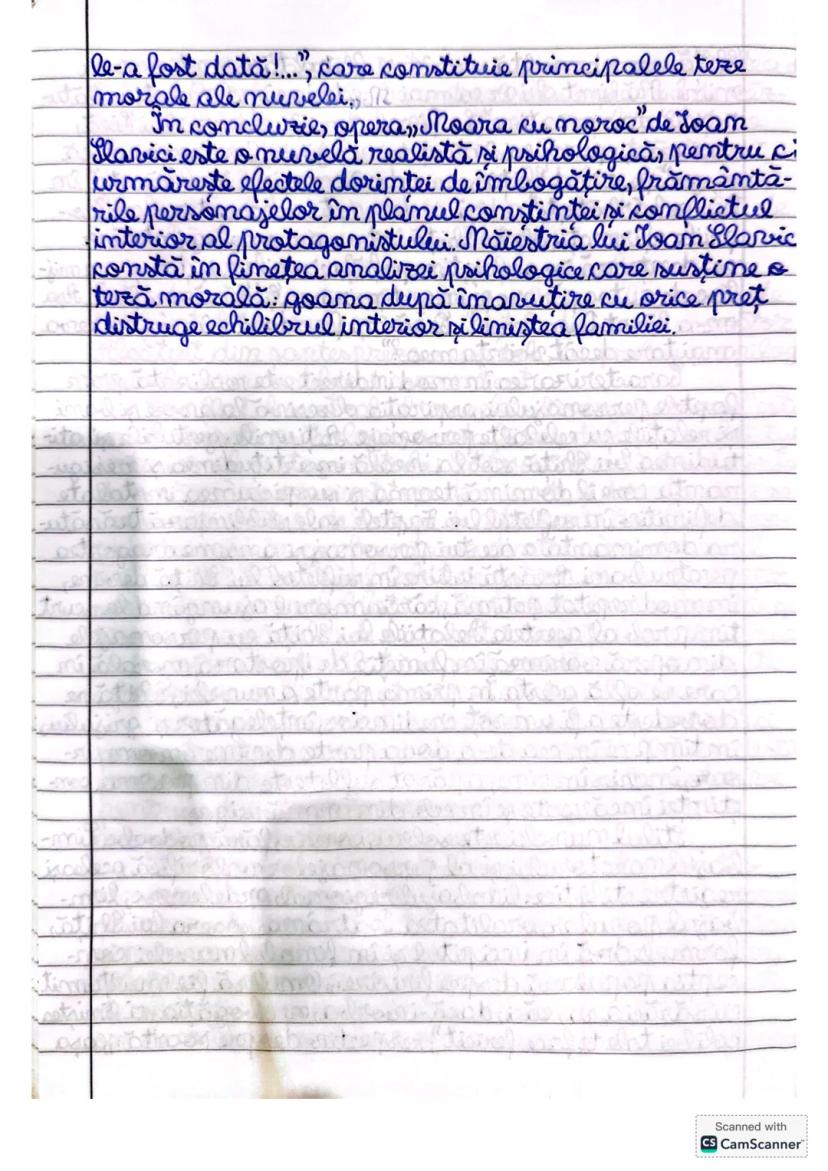 le-a fost dată!...", care constituie principalele teze
morale ale nuvelei.
În concluzie, opera „Moara cu noroc" de Ioan
Slavici este o nuvelă realistă și psihologică, pentru că
urmărește efectele dorinței de îmbogățire, frământă-
rile personajelor în planul conștinței și conflictul
interior al protagonistului. Măiestria lui Ioan Slavic
constă în finețea analizei psihologice care susține o
teză morală: goana după înavuțire cu orice preț
distruge echilibrul interior și liniștea familiei.
Scanned with
CS CamScanner